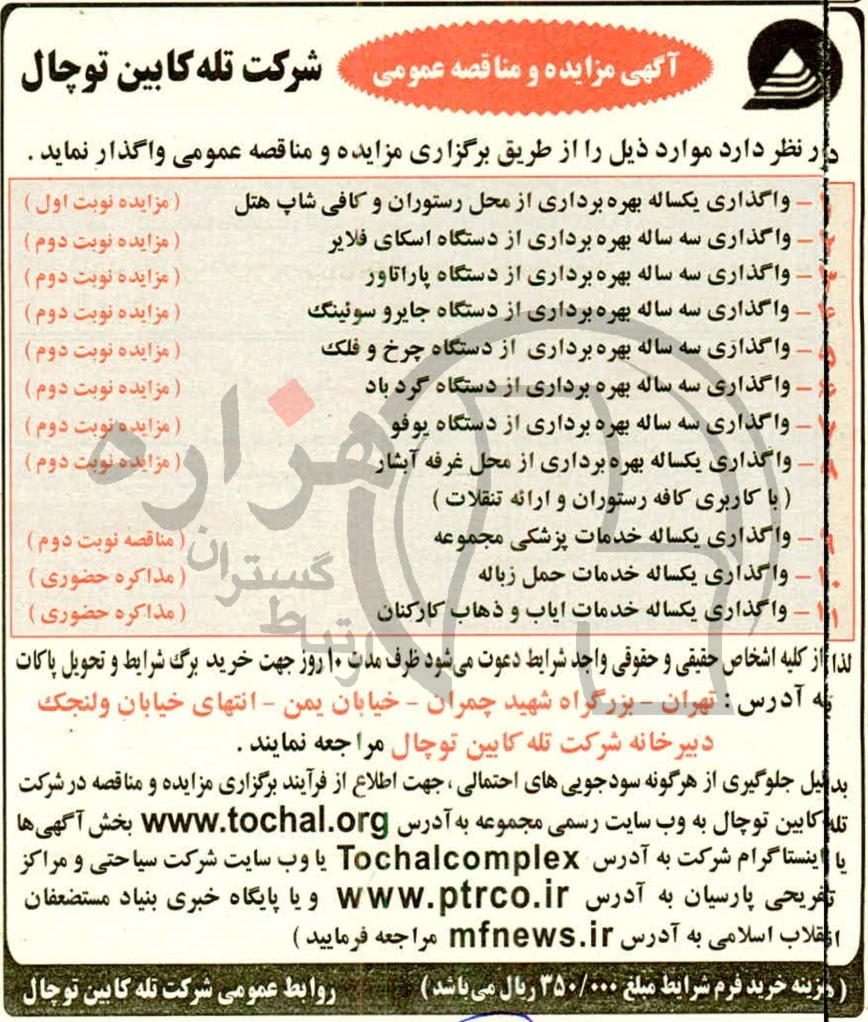 آگهی مزایده و مناقصه عمومی
شرکت تله کابین توچال
در نظر دارد موارد ذیل را از طریق برگزاری مزایده و مناقصه عمومی واگذار نماید .
۱ - واگذاری یکساله بهره برداری از محل رستوران و کافی شاپ هتل ( مزایده نوبت اول )
۲ - واگذاری سه ساله بهره برداری از دستگاه اسکای فلایر ( مزایده نوبت دوم )
۳ - واگذاری سه ساله بهره برداری از دستگاه پاراتاور ( مزایده نوبت دوم )
۴ - واگذاری سه ساله بهره برداری از دستگاه جایرو سوئینگ ( مزایده نوبت دوم )
۵ - واگذاری سه ساله بهره برداری از دستگاه چرخ و فلک ( مزایده نوبت دوم )
۶ - واگذاری سه ساله بهره برداری از دستگاه گرد باد ( مزایده نوبت دوم )
۷ - واگذاری سه ساله بهره برداری از دستگاه یوفو ( مزایده نوبت دوم )
۸ - واگذاری یکساله بهره برداری از محل غرفه آبشار ( مزایده نوبت دوم )
( با کاربری کافه رستوران و ارائه تنقلات )
۹ - واگذاری یکساله خدمات پزشکی مجموعه ( مناقصه نوبت دوم )
۱۰ - واگذاری یکساله خدمات حمل زباله ( مذاکره حضوری )
۱۱ - واگذاری یکساله خدمات ایاب و ذهاب کارکنان ( مذاکره حضوری )
هزاره
گستران
ارتباط
لذا از کلیه اشخاص حقیقی و حقوقی واجد شرایط دعوت می شود ظرف مدت ۱۰ روز جهت خرید برگ شرایط و تحویل پاکات
به آدرس : تهران - بزرگراه شهید چمران - خیابان یمن - انتهای خیابان ولنجک
دبیرخانه شرکت تله کابین توچال مراجعه نمایند .
بدلیل جلوگیری از هرگونه سودجویی های احتمالی ، جهت اطلاع از فرآیند برگزاری مزایده و مناقصه در شرکت
تله کابین توچال به وب سایت رسمی مجموعه به آدرس www.tochal.org بخش آگهی ها
یا اینستاگرام شرکت به آدرس Tochalcomplex یا وب سایت شرکت سیاحتی و مراکز
تفریحی پارسیان به آدرس www.ptrco.ir و یا پایگاه خبری بنیاد مستضعفان
انقلاب اسلامی به آدرس mfnews.ir مراجعه فرمایید )
( هزینه خرید فرم شرایط مبلغ ۳۵۰/۰۰۰ ریال می باشد ) روابط عمومی شرکت تله کابین توچال